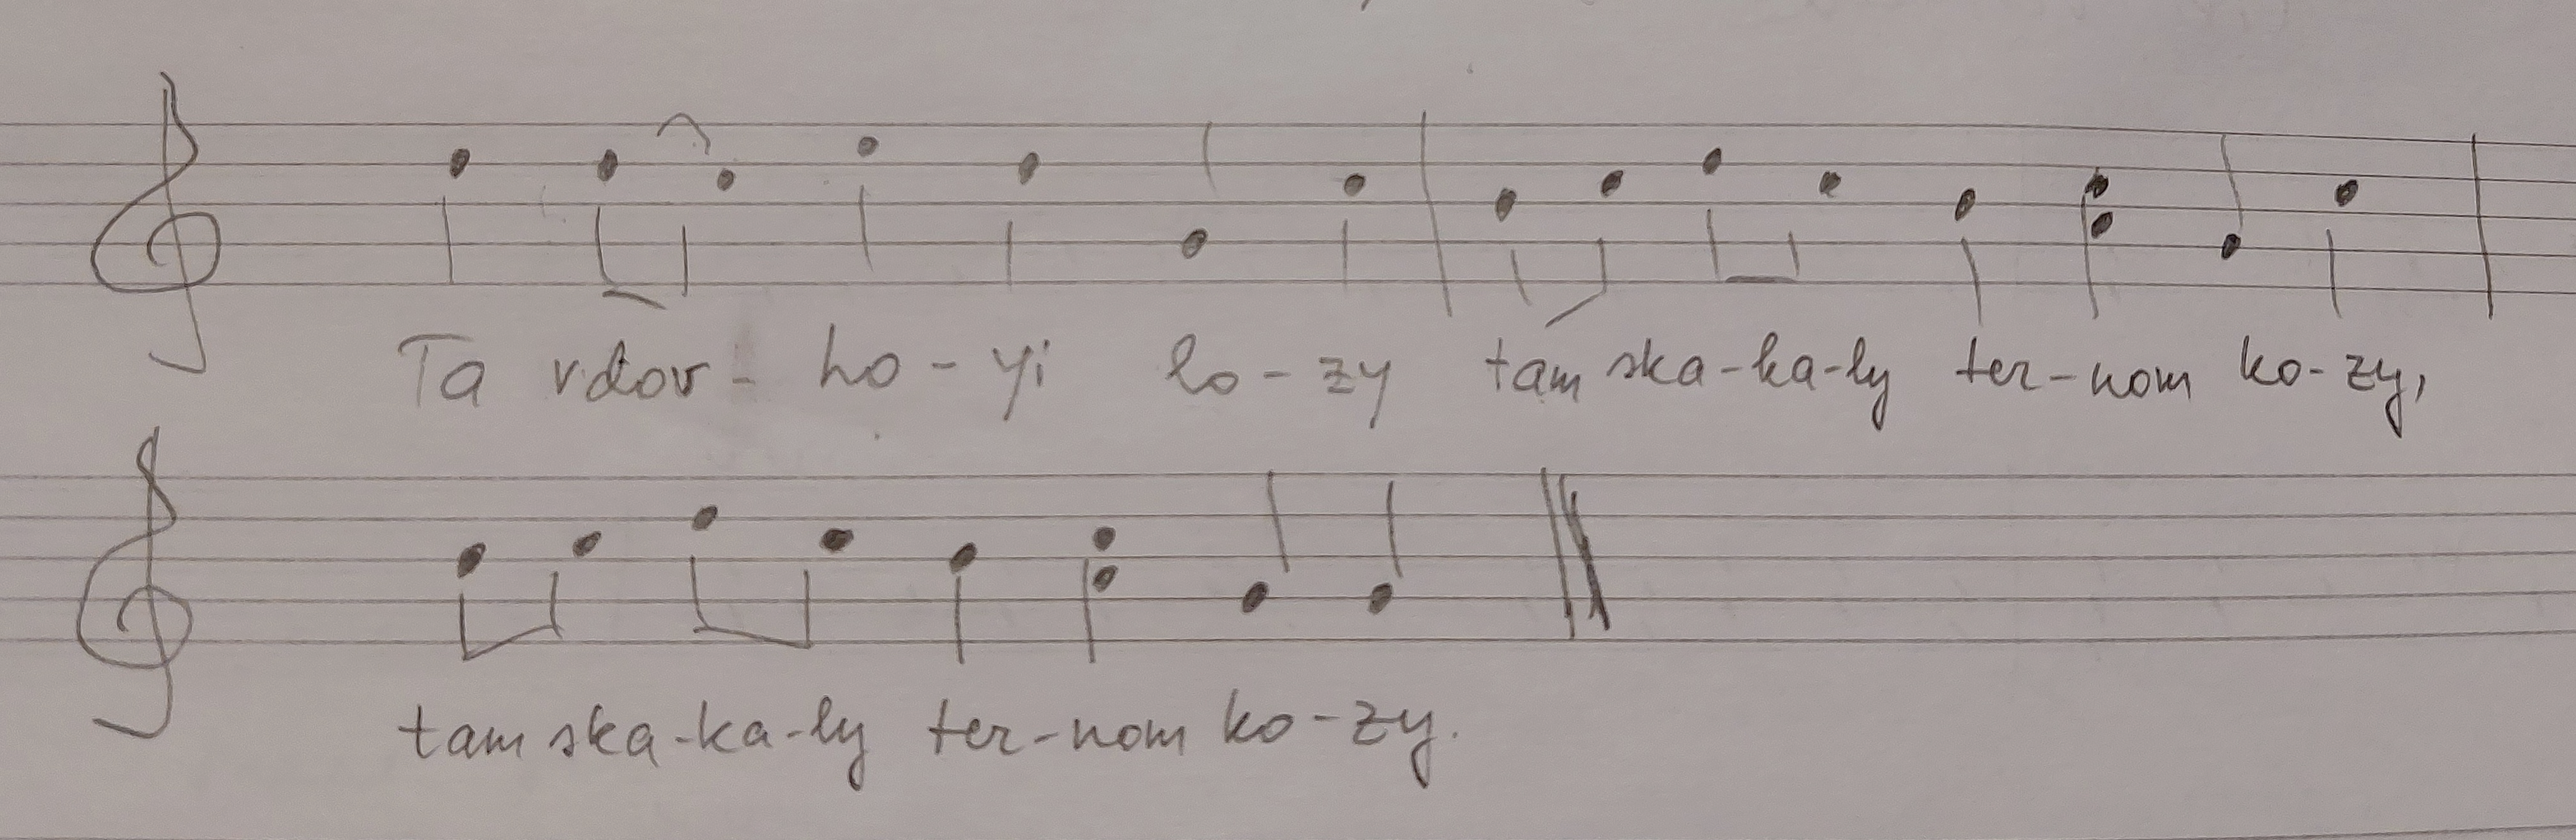 Ta vdov - ho - yi lo - zy tam ska - ka - ly ter - nom ko - zy,
tam ska - ka - ly ter - nom ko - zy.